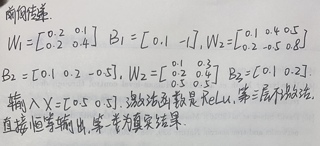 前向传递.
W₁=[0.2 0.1
0.2 0.4] B₁=[0.1 -1], W₂=[0.1 0.4 0.5
0.2 -0.5 0.8]
B₂=[0.1 0.2 -0.5], W₂=[0.1 0.3
0.2 0.4
0.5 0.5] B₃=[0.1 0.2].
输入X=[0.5 0.5].激活函数是ReLu,第三层不激活,
直接恒等输出,第一类为真实结果.